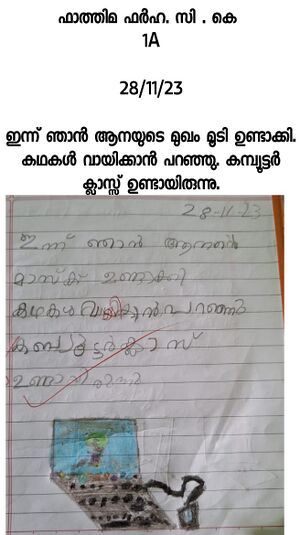 ഫാത്തിമ ഫർഹ. സി . കെ
1A
28/11/23
ഇന്ന് ഞാൻ ആനയുടെ മുഖം മൂടി ഉണ്ടാക്കി.
കഥകൾ വായിക്കാൻ പറഞ്ഞു. കമ്പ്യൂട്ടർ
ക്ലാസ്സ് ഉണ്ടായിരുന്നു.
28-11-23
ഇന്ന് ഞാൻ ആനയുടെ
മാസ്ക് ഉണ്ടാക്കി
കഥകൾ വായിക്കാൻ പറഞ്ഞു
കമ്പ്യൂട്ടർ ക്ലാസ്